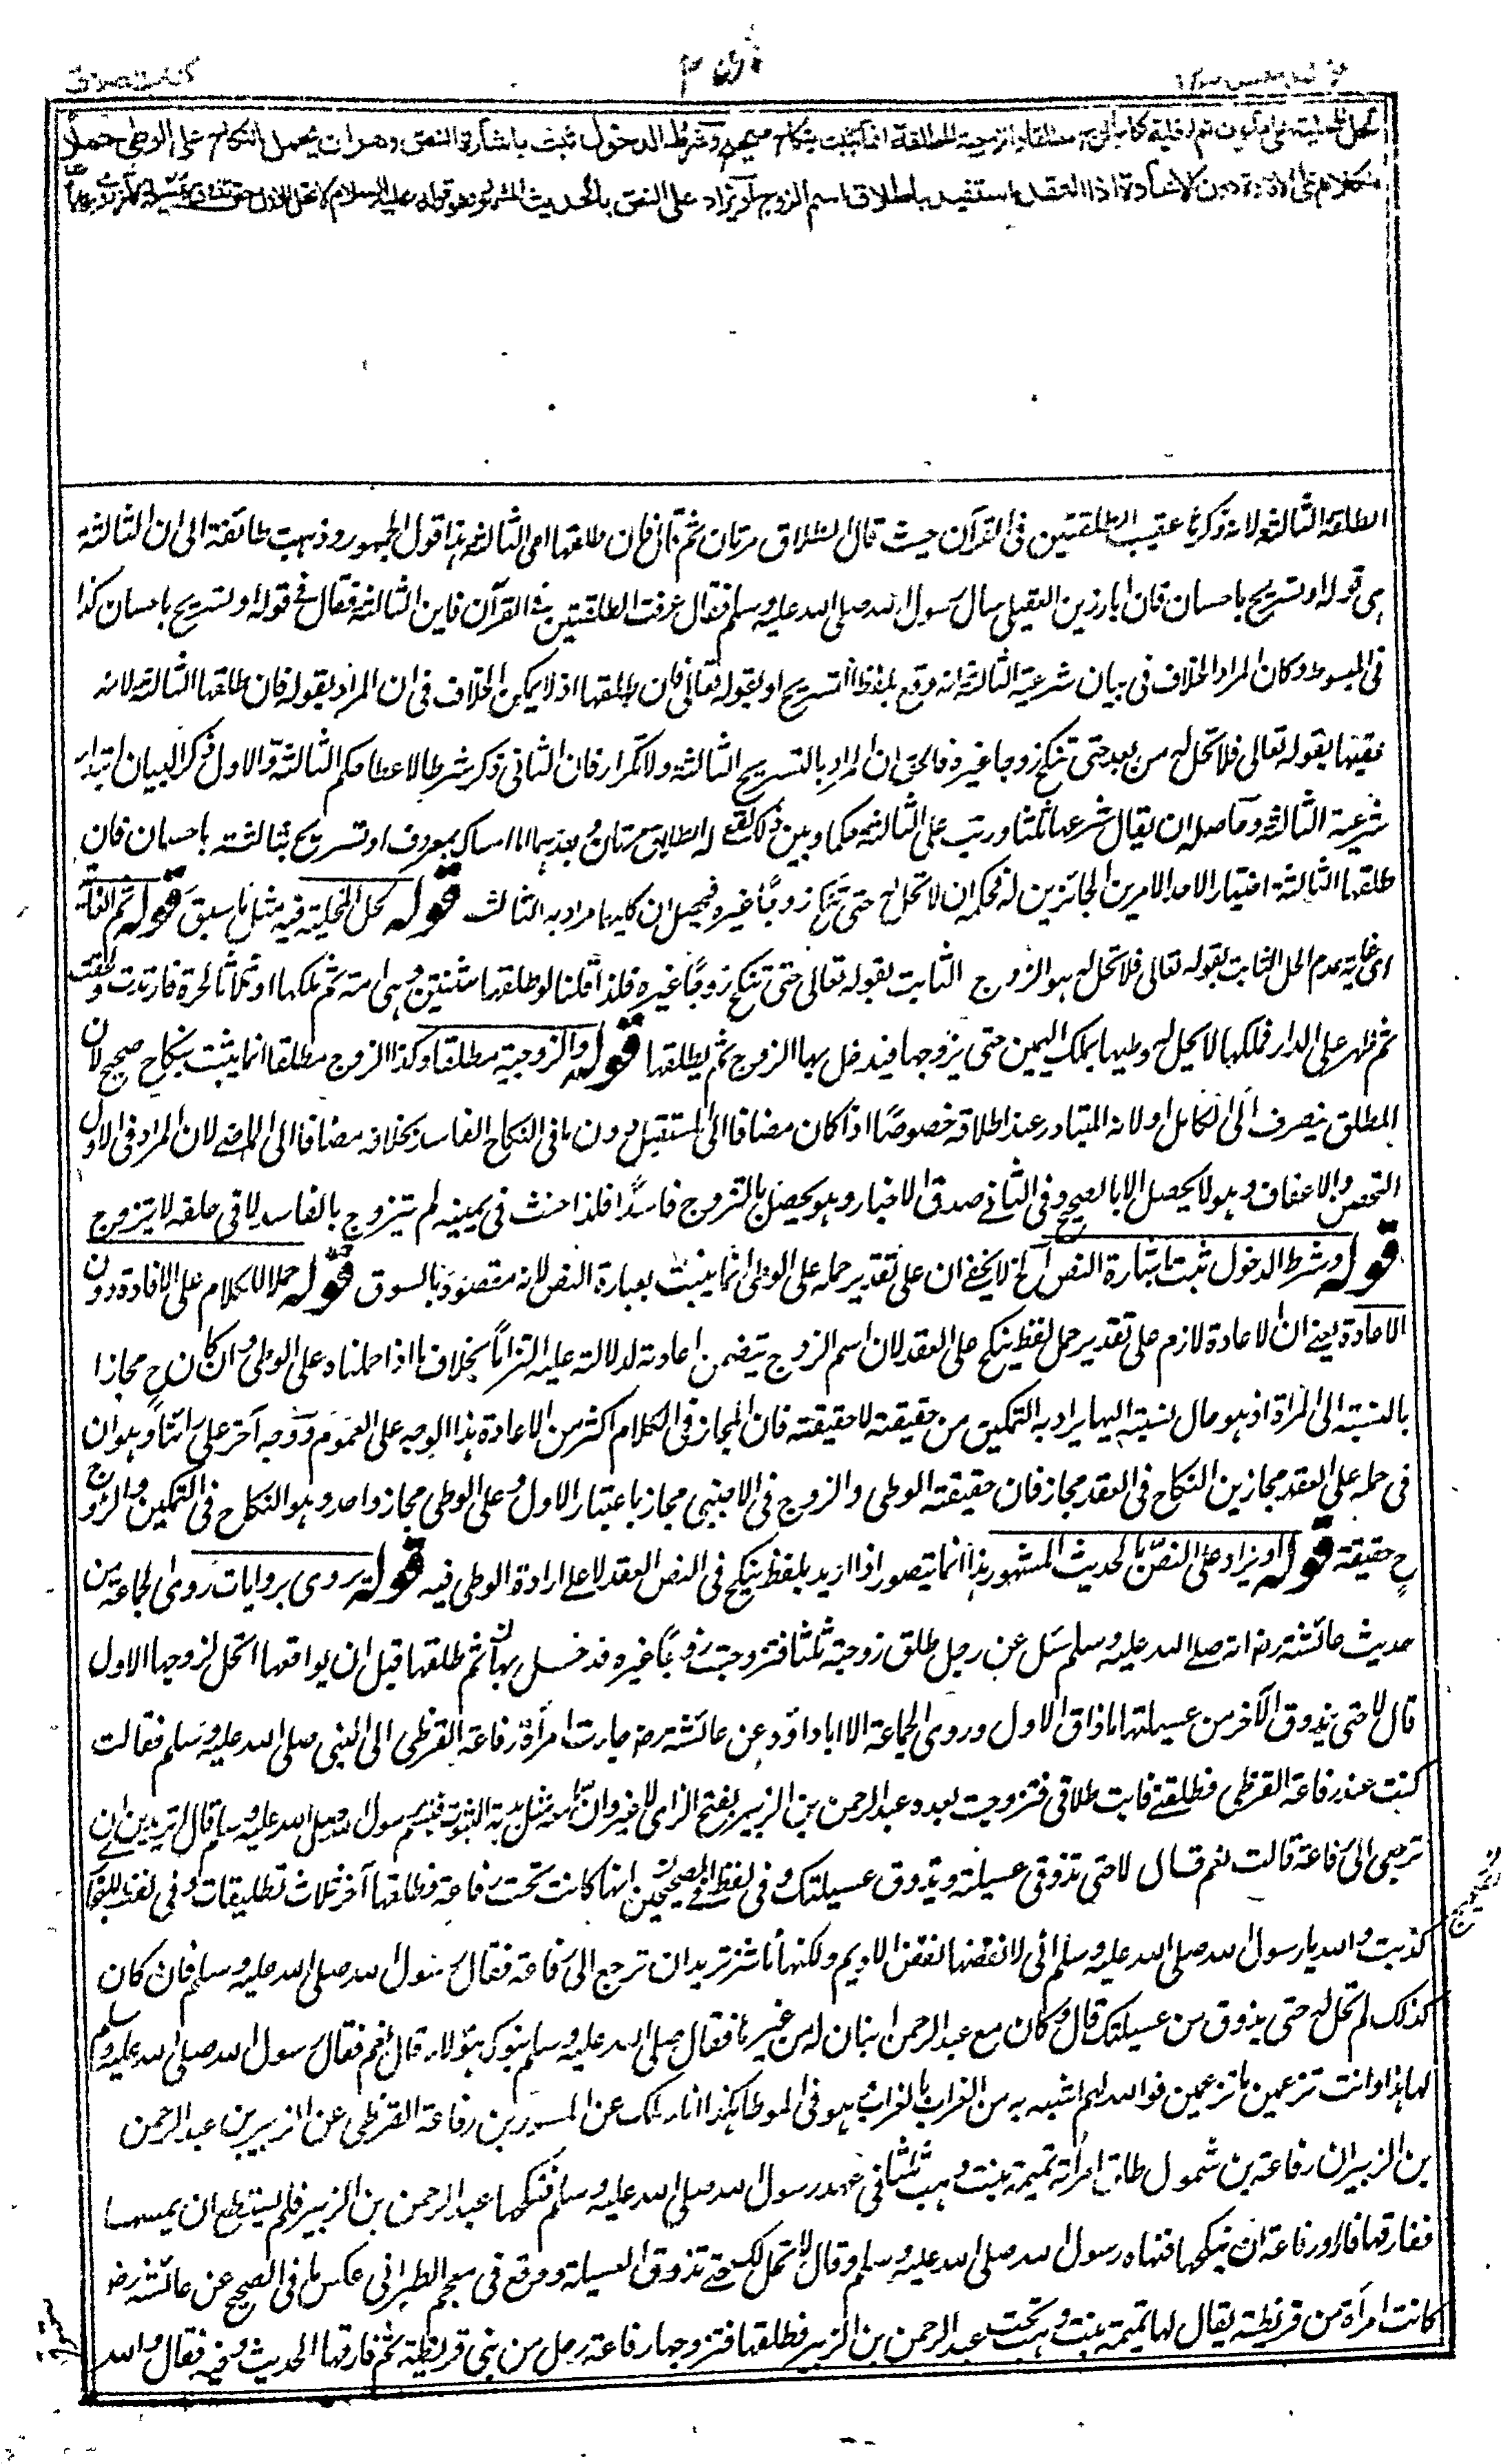 المحلية ثم الغاية نكاح الزوج مطلقا والزوجية المطلقة انما تثبت بنكاح صحيح وشرط الدخول ثبت باشارة النص وهو ان يحمل النكاح على الوطي حملا
للكلام على الافادة دون الاعادة اذ العقد استفيد باطلاق اسم الزوج او يزاد على النص بالحديث المشهور وهو قوله عليه السلام لا تحل للاول حتى تذوق عسيلة الآخر
الطلقة الثالثة لانه ذكرها عقيب الطلقتين فى القرآن حيث قال الطلاق مرتان ثم قال فان طلقها اى الثالثة هذا قول الجمهور وذهبت طائفة الى ان الثالثة
هى قوله او تسريح باحسان فان ابا رزين العقيلى سال رسول الله صلى الله عليه وسلم فقال عرفت الطلقتين فى القرآن فاين الثالثة فقال فى قوله او تسريح باحسان كذا
فى المبسوط وكان المراد الخلاف فى بيان شرعية الثالثة انه وقع بلفظ التسريح او بقوله تعالى فان طلقها اذ لا يمكن الخلاف فى ان المراد بقوله فان طلقها الثالثة لانه
عقبها بقوله تعالى فلا تحل له من بعد حتى تنكح زوجا غيره فالحق ان المراد بالتسريح الثالثة ولا تكرار فان الثانى ذكر شرطا لاعطاء حكم الثالثة والاول ذكر لبيان ابتداء
شرعية الثالثة وحاصله ان يقال شرعها ثلثا ورتب على الثالثة حكما وبين ذلك بقوله الطلاق مرتان وبعدهما اما امساك بمعروف او تسريح بثالثة باحسان فان
طلقها الثالثة اختيارا لاحد الامرين الجائزين له فحكمه ان لا تحل له حتى تنكح زوجا غيره فيحصل ان كليهما مراد به الثالث قوله لحل المحلية فيه مثل ما سبق قوله ثم الغاية
اى غاية عدم الحل الثابت بقوله تعالى فلا تحل له هو الزوج الثابت بقوله تعالى حتى تنكح زوجا غيره فلذا قلنا لو طلقها ثنتين وهى امة ثم ملكها او ثلاثا لحرة فارتدت ولحقت
ثم ظهر على الدار فملكها لا يحل له وطيها بملك اليمين حتى يزوجها فيدخل بها الزوج ثم يطلقها قوله والزوجية مطلقا وكذا الزوج مطلقا انما يثبت بنكاح صحيح لان
المطلق ينصرف الى الكامل ولانه المتبادر عند اطلاقه خصوصا اذا كان مضافا الى المستقبل دون ما فى النكاح الفاسد بخلافه مضافا الى الماضى لان المراد فى الاول
التحصن والاعفاف وهو لا يحصل الا بالصحيح وفى الثانى صدق الاخبار وهو يحصل بالتزوج فاسدا فلذا حنث فى يمينه لم تتزوج بالفاسد لا فى حلفه لا يتزوج
قوله وشرط الدخول ثبت باشارة النص الخ لا يخفى ان على تقدير حمله على الوطى انما يثبت بعبارة النص لانه مقصود بالسوق قوله حملا للكلام على الافادة دون
الاعادة يعنى ان الاعادة لازم على تقدير حمل لفظ ينكح على العقد لان اسم الزوج يتضمن اعادته لدلالته عليه التزاما بخلاف ما اذا حملناه على الوطى وان كان ح مجازا
بالنسبة الى المرأة اذ هو حال نسبته اليها يراد به التمكين من حقيقته لا حقيقته فان المجاز فى الكلام اكثر من الاعادة هذا الوجه على العموم ووجه آخر على رائنا وهو ان
فى حمله على العقد مجازين النكاح فى العقد مجاز فان حقيقته الوطى والزوج فى الاجنبى مجاز باعتبار الاول وعلى الوطى مجاز واحد وهو النكاح فى التمكين والزوج
ح حقيقة قوله او يزاد على النص بالحديث المشهور هذا انما يتصور اذا اريد بلفظ ينكح فى النص العقد لا على ارادة الوطى فيه قوله يروى بروايات روى الجماعة من
حديث عائشة رض انه صلى الله عليه وسلم سئل عن رجل طلق زوجته ثلثا فتزوجت زوجا غيره فدخل بها ثم طلقها قبل ان يواقعها اتحل لزوجها الاول
قال لا حتى يذوق الآخر من عسيلتها ما ذاق الاول وروى الجماعة الا ابا داود عن عائشة رض جاءت امرأة رفاعة القرظى الى النبى صلى الله عليه وسلم فقالت
كنت عند رفاعة القرظى فطلقنى فابت طلاقى فتزوجت بعده عبد الرحمن بن الزبير بفتح الزاى لا غير وان ما معه مثل هدبة الثوب فتبسم رسول الله صلى الله عليه وسلم قال اتريدين ان
ترجعى الى رفاعة قالت نعم قال لا حتى تذوقى عسيلته ويذوق عسيلتك وفى لفظ فى الصحيحين انها كانت تحت رفاعة فطلقها آخر ثلاث تطليقات وفى لفظ للبخارى
كذبت والله يا رسول الله صلى الله عليه وسلم انى لانفضها نفض الاديم ولكنها ناشز تريد ان ترجع الى رفاعة فقال رسول الله صلى الله عليه وسلم فان كان
كذلك لم تحل له حتى يذوق من عسيلتك قال وكان مع عبد الرحمن ابنان له من غيرها فقال صلى الله عليه وسلم بنوك هؤلاء قال نعم فقال رسول الله صلى الله عليه وسلم
لها هذا وانت تزعمين ما تزعمين فوالله لهم اشبه به من الغراب بالغراب هو فى الموطا هكذا انا مالك عن المسور بن رفاعة القرظى عن الزبير بن عبد الرحمن
بن الزبير ان رفاعة بن شمول طلق امرأته تميمة بنت وهب ثلثا فى عهد رسول الله صلى الله عليه وسلم فنكحها عبد الرحمن بن الزبير فلم يستطع ان يمسها
ففارقها فاراد رفاعة ان ينكحها فنهاه رسول الله صلى الله عليه وسلم وقال لا تحل لك حتى تذوق العسيلة ووقع فى معجم الطبرانى عكس ما فى الصحيح عن عائشة رض
كانت امرأة من قريظة يقال لها تميمة بنت وهب تحت عبد الرحمن بن الزبير فطلقها فتزوجها رفاعة رجل من بنى قريظة ثم فارقها الحديث وفيه فقال والله